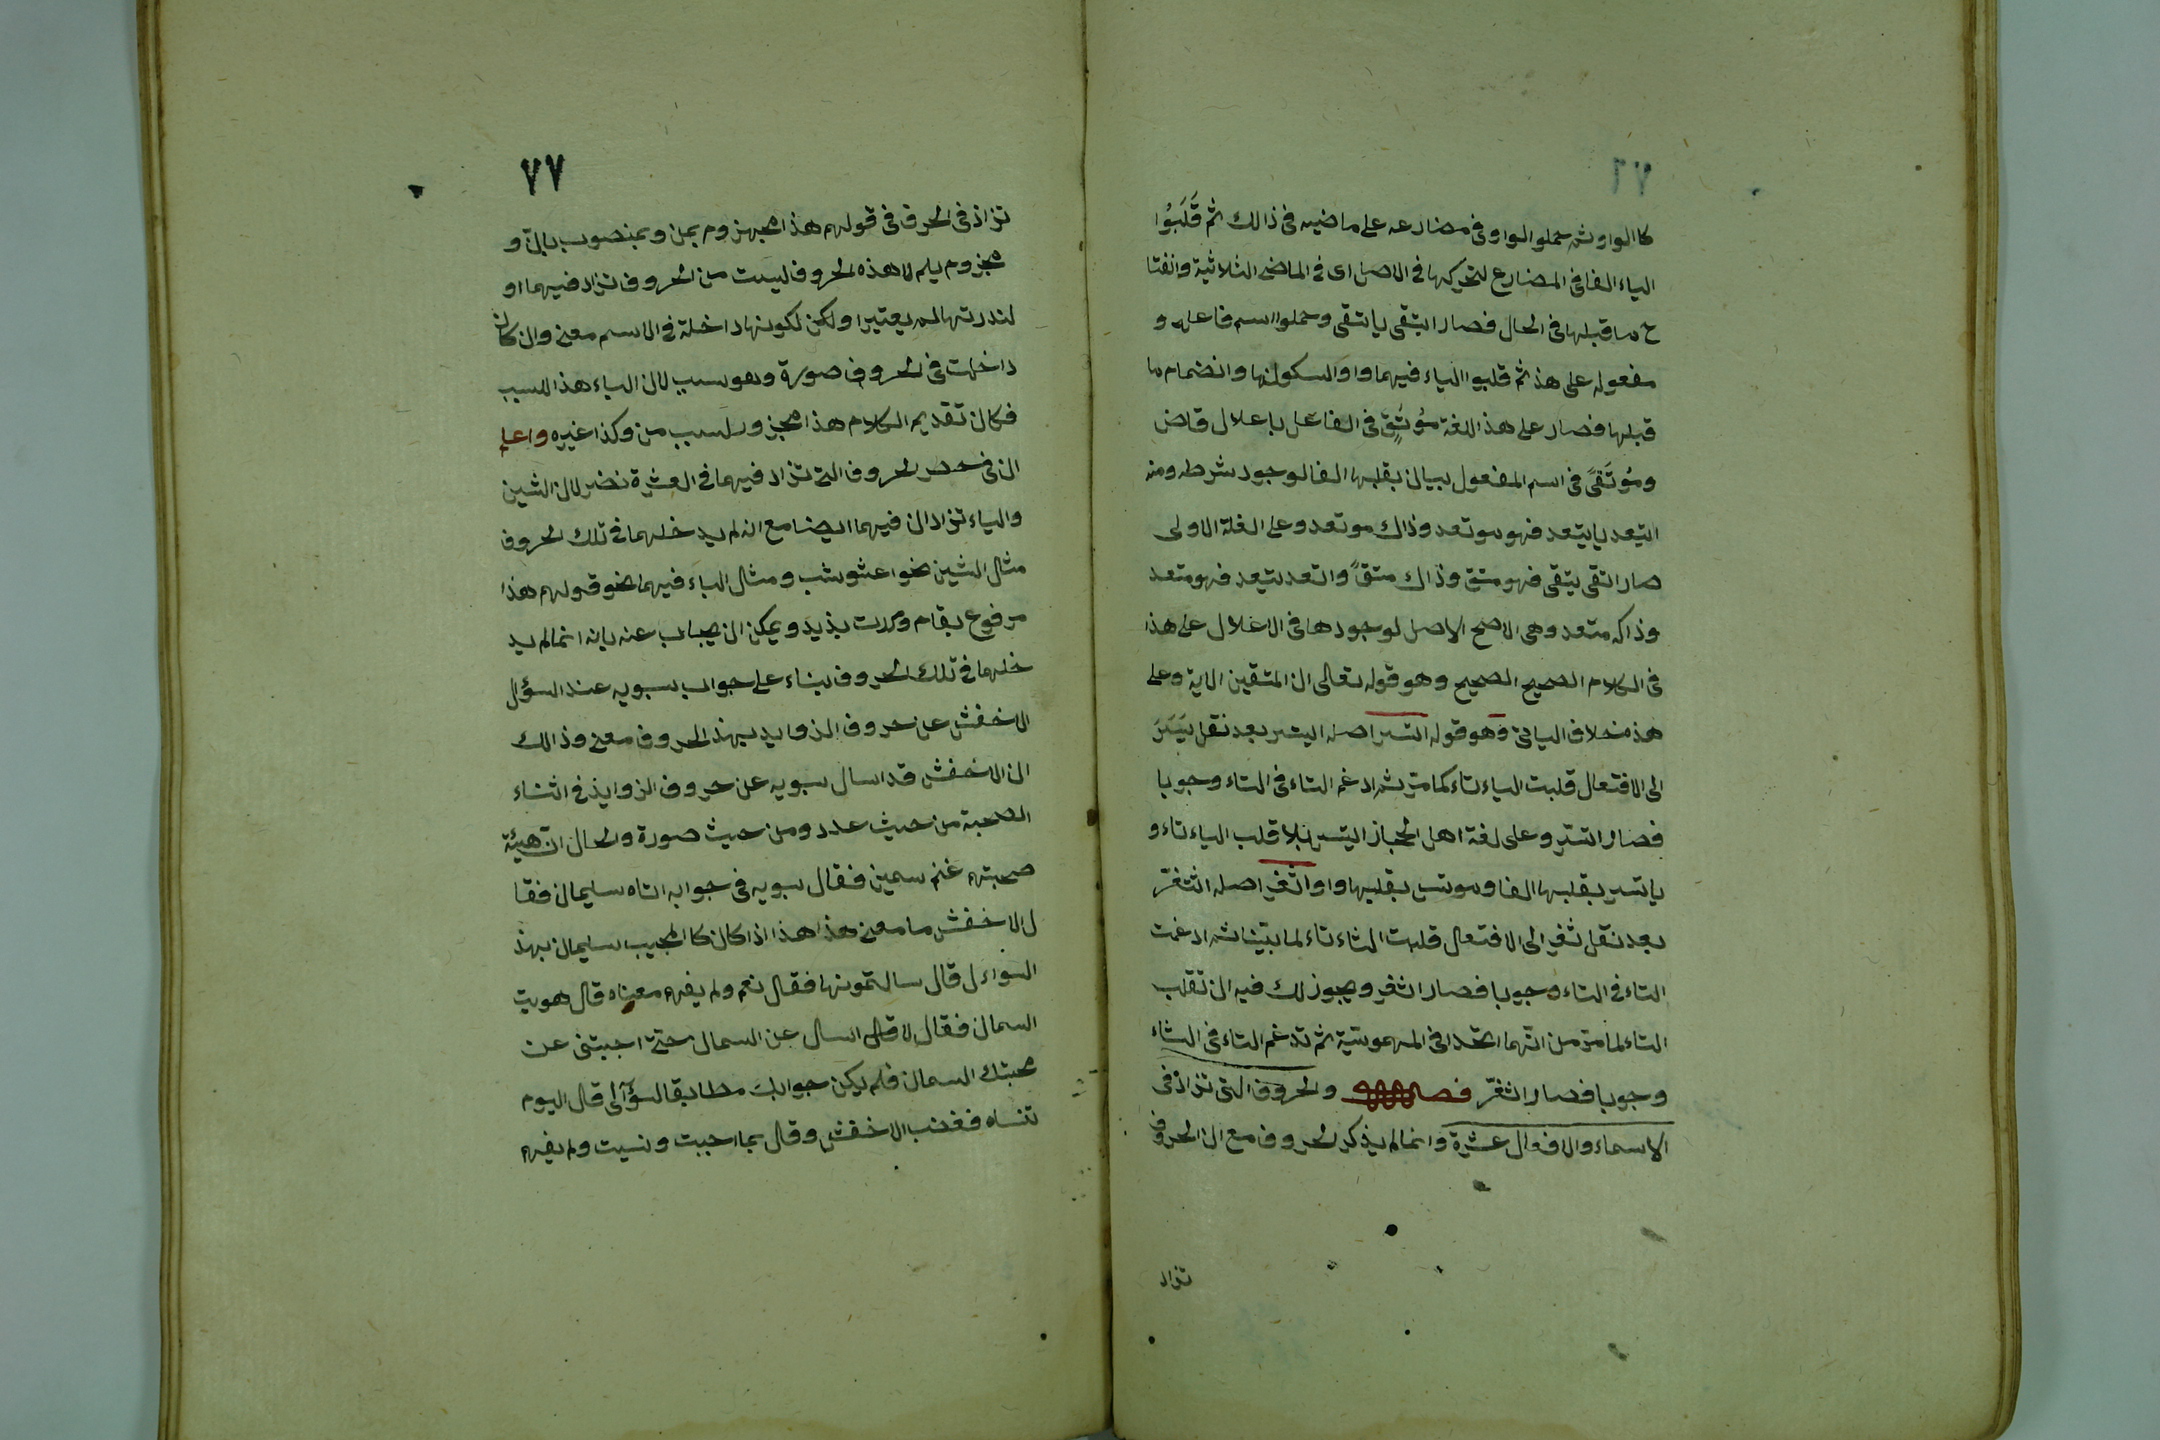 ٧٦
كاالواو ثم حملوا الواو فى مضارعه على ماضيه فى ذالك ثم قَلَبُوا
الياء الفا فى المضارع لتحركها فى الاصل اى فى الماضى الثلاثية وانفتا
ح ما قبلها فى الحال فصار ايتقى ياتقى وحملوا اسم فاعله و
مفعوله على هذ ثم قلبوا الياء فيهما واوا لسكونها وانضمام ما
قبلها فصار على هذ اللغة مُوتَقٍ فى الفاعل باعلال قاض
ومُوتَقىً فى اسم المفعول ببيان بقلبها الفا لوجود شرطه ومنه
ايتعد ياتعد فهو موتعد وذاك موتعد وعلى الغلة الاولى
صار اتقى يتقى فهو متق وذاك متقً واتعد يتعد فهو متعد
وذاكه متعد وهى الاصح الاصل لوجودها فى الاعلال على هذا
فى الكلام الصحيح الصحيح وهو قوله تعالى ان المتقين الاية وعلى
هذ مخلاف اليائى وهو قوله اتسر اصله ايتسر بعد نقل يَسَرَ
الى الافتعال قلبت الياء تاء كما مرّ ثم ادغم التاء فى التاء وجوبا
فصار اتسر وعلى لغة اهل الحجاز ايتسر بلا قلب الياء تاء و
ياتسر بقلبها الفا وموتسر بقلبها واوا اثغر اصله اثتغرّ
بعد نقل ثغر الى الافتعال قلبت الثاء تاء لما بيّنا ثم ادغمت
التاء فى التاء وجوبا فصار اتغر ويجوز لك فيه ان تقلب
التاء لما مرّ من انّهما اتحدا فى المهموسية ثم تدغم الثاء فى الثاء
وجوبا فصار اثغرّ والحروف التى تزاد فى
الاسماء والافعال عشرة وانما لم يذكر الحروف مع ان الحروف
تزاد
٧٧
تزاد فى الحرف فى قولهم هذا مجزوم بمن وبمنصوب بان و
مجزوم بلم لا هذه الحروف ليست من الحروف تزاد فيهما او
لندرتها لم يعتبرا ولكن لكونها داخلة فى الاسم معنى وان كان
داخلت فى الحروف صورة وهو سبب لان الباء هذا للسبب
فكان تقديم الكلام هذا مجزو بسبب من وكذا غيره واعلم
ان فى حصر الحروف التى تزاد فيهما فى العشرة نضر لان الشين
والياء تزادان فيهما ايضا مع انه لم يدخلهما فى تلك الحروف
مثال الشين نحو اعشوشب ومثال الباء فيهما نحو قولهم هذا
مرفوع بقام ومررت بذيد ويمكن ان يجاب عنه بانه انما لم يد
خلهما فى تلك الحروف بناء على جواب سبويه عند السؤال
الاخفش عن حروف الذوايد بهذ الحروف معنى وذالك
ان الاخفش قد اسال سبويه عن حروف الزوايذ فى اثناء
الصحبة من حيث عدد ومن حيث صورة والحال انّ هيئة
صحبتهم غنم سمين فقال سبويه فى جوابه اتاه سليمان فقا
ل الاخفش ما معنى هذا هذا اذا كان كا المجيب سليمان بهذ
السؤال قال سالتمونها فقال نعم ولم يفهم معناه قال هويت
السمان فقال لا قل اسال عن السمال حتى اجبتنى عن
محبتك السمان فلم يكن جوابك مطابقا لسؤآلى قال اليوم
تنساه فغضب الاخفش وقال بما احببت ونسيت ولم يفهم